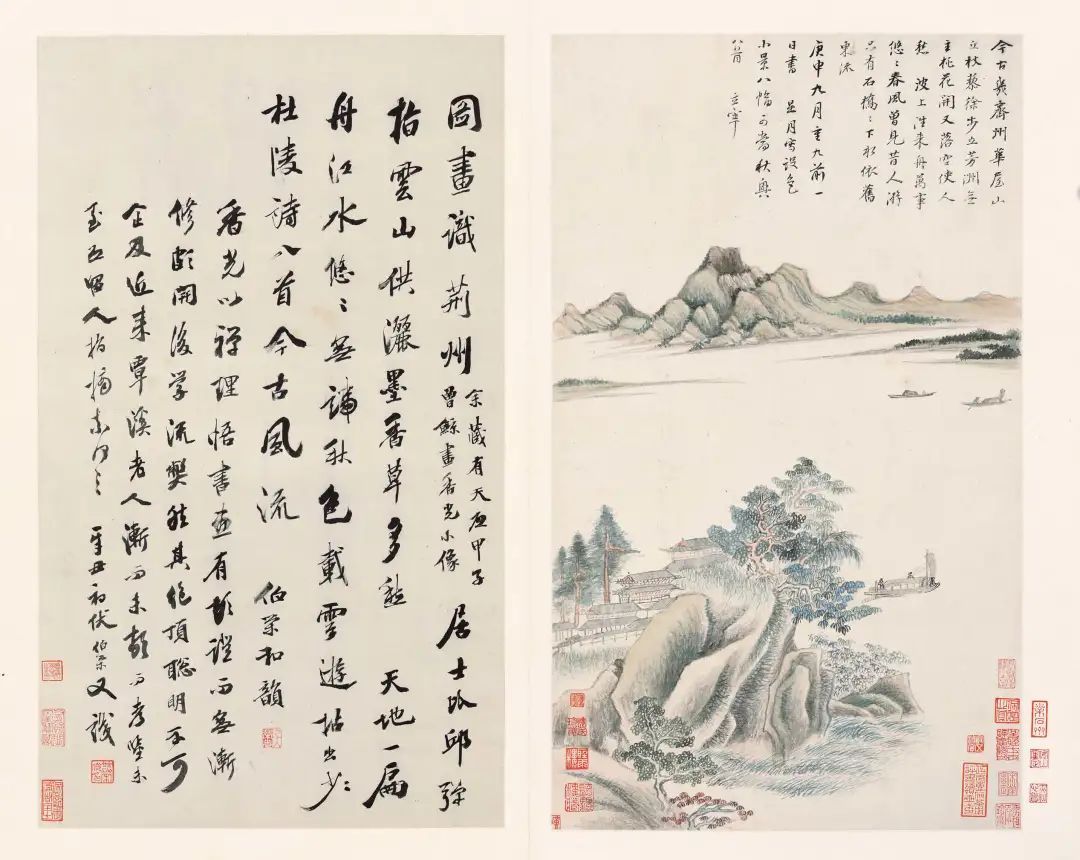 今古幾齊州華屋山
丘杖藜徐步立芳洲無
主桃花開又落空使人
愁 波上往來舟萬事
悠〻春風曾見昔人游
只有石橋〻下水依舊
東流
庚申九月重九前一
日書 是月寫設色
小景八幅可當秋興
八首 玄宰
圖畫識荊州
余藏有天啟甲子
曾鯨畫香光小像
居士林邱彈
指雲山供灑墨香草多愁 天地一扁
舟江水悠〻無端秋色載雲遊拈出少
杜陵詩八首今古風流 伯榮和韻
香光以禪理悟書畫有頓證而無漸
修頗開後學流弊然其絕頂聰明不可
企及近來覃溪老人漸而未頓而
人指摘 辛丑初伏伯榮又識